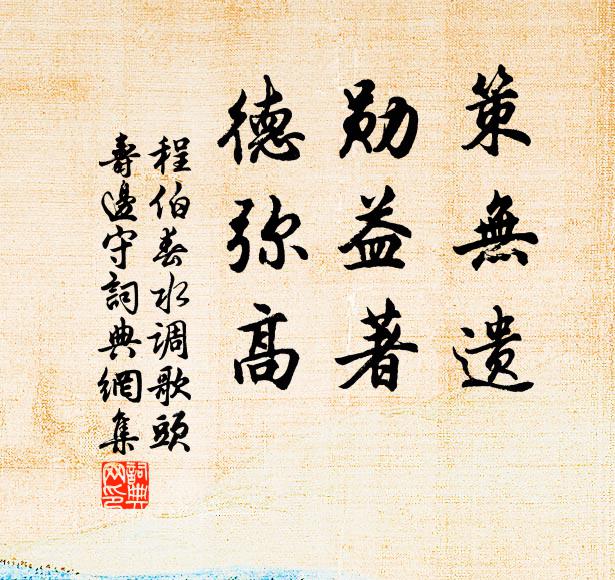 策無遗
勋益著
德弥高
程伯春水调歌頭
壽邊守詞典網集
詞典
网印